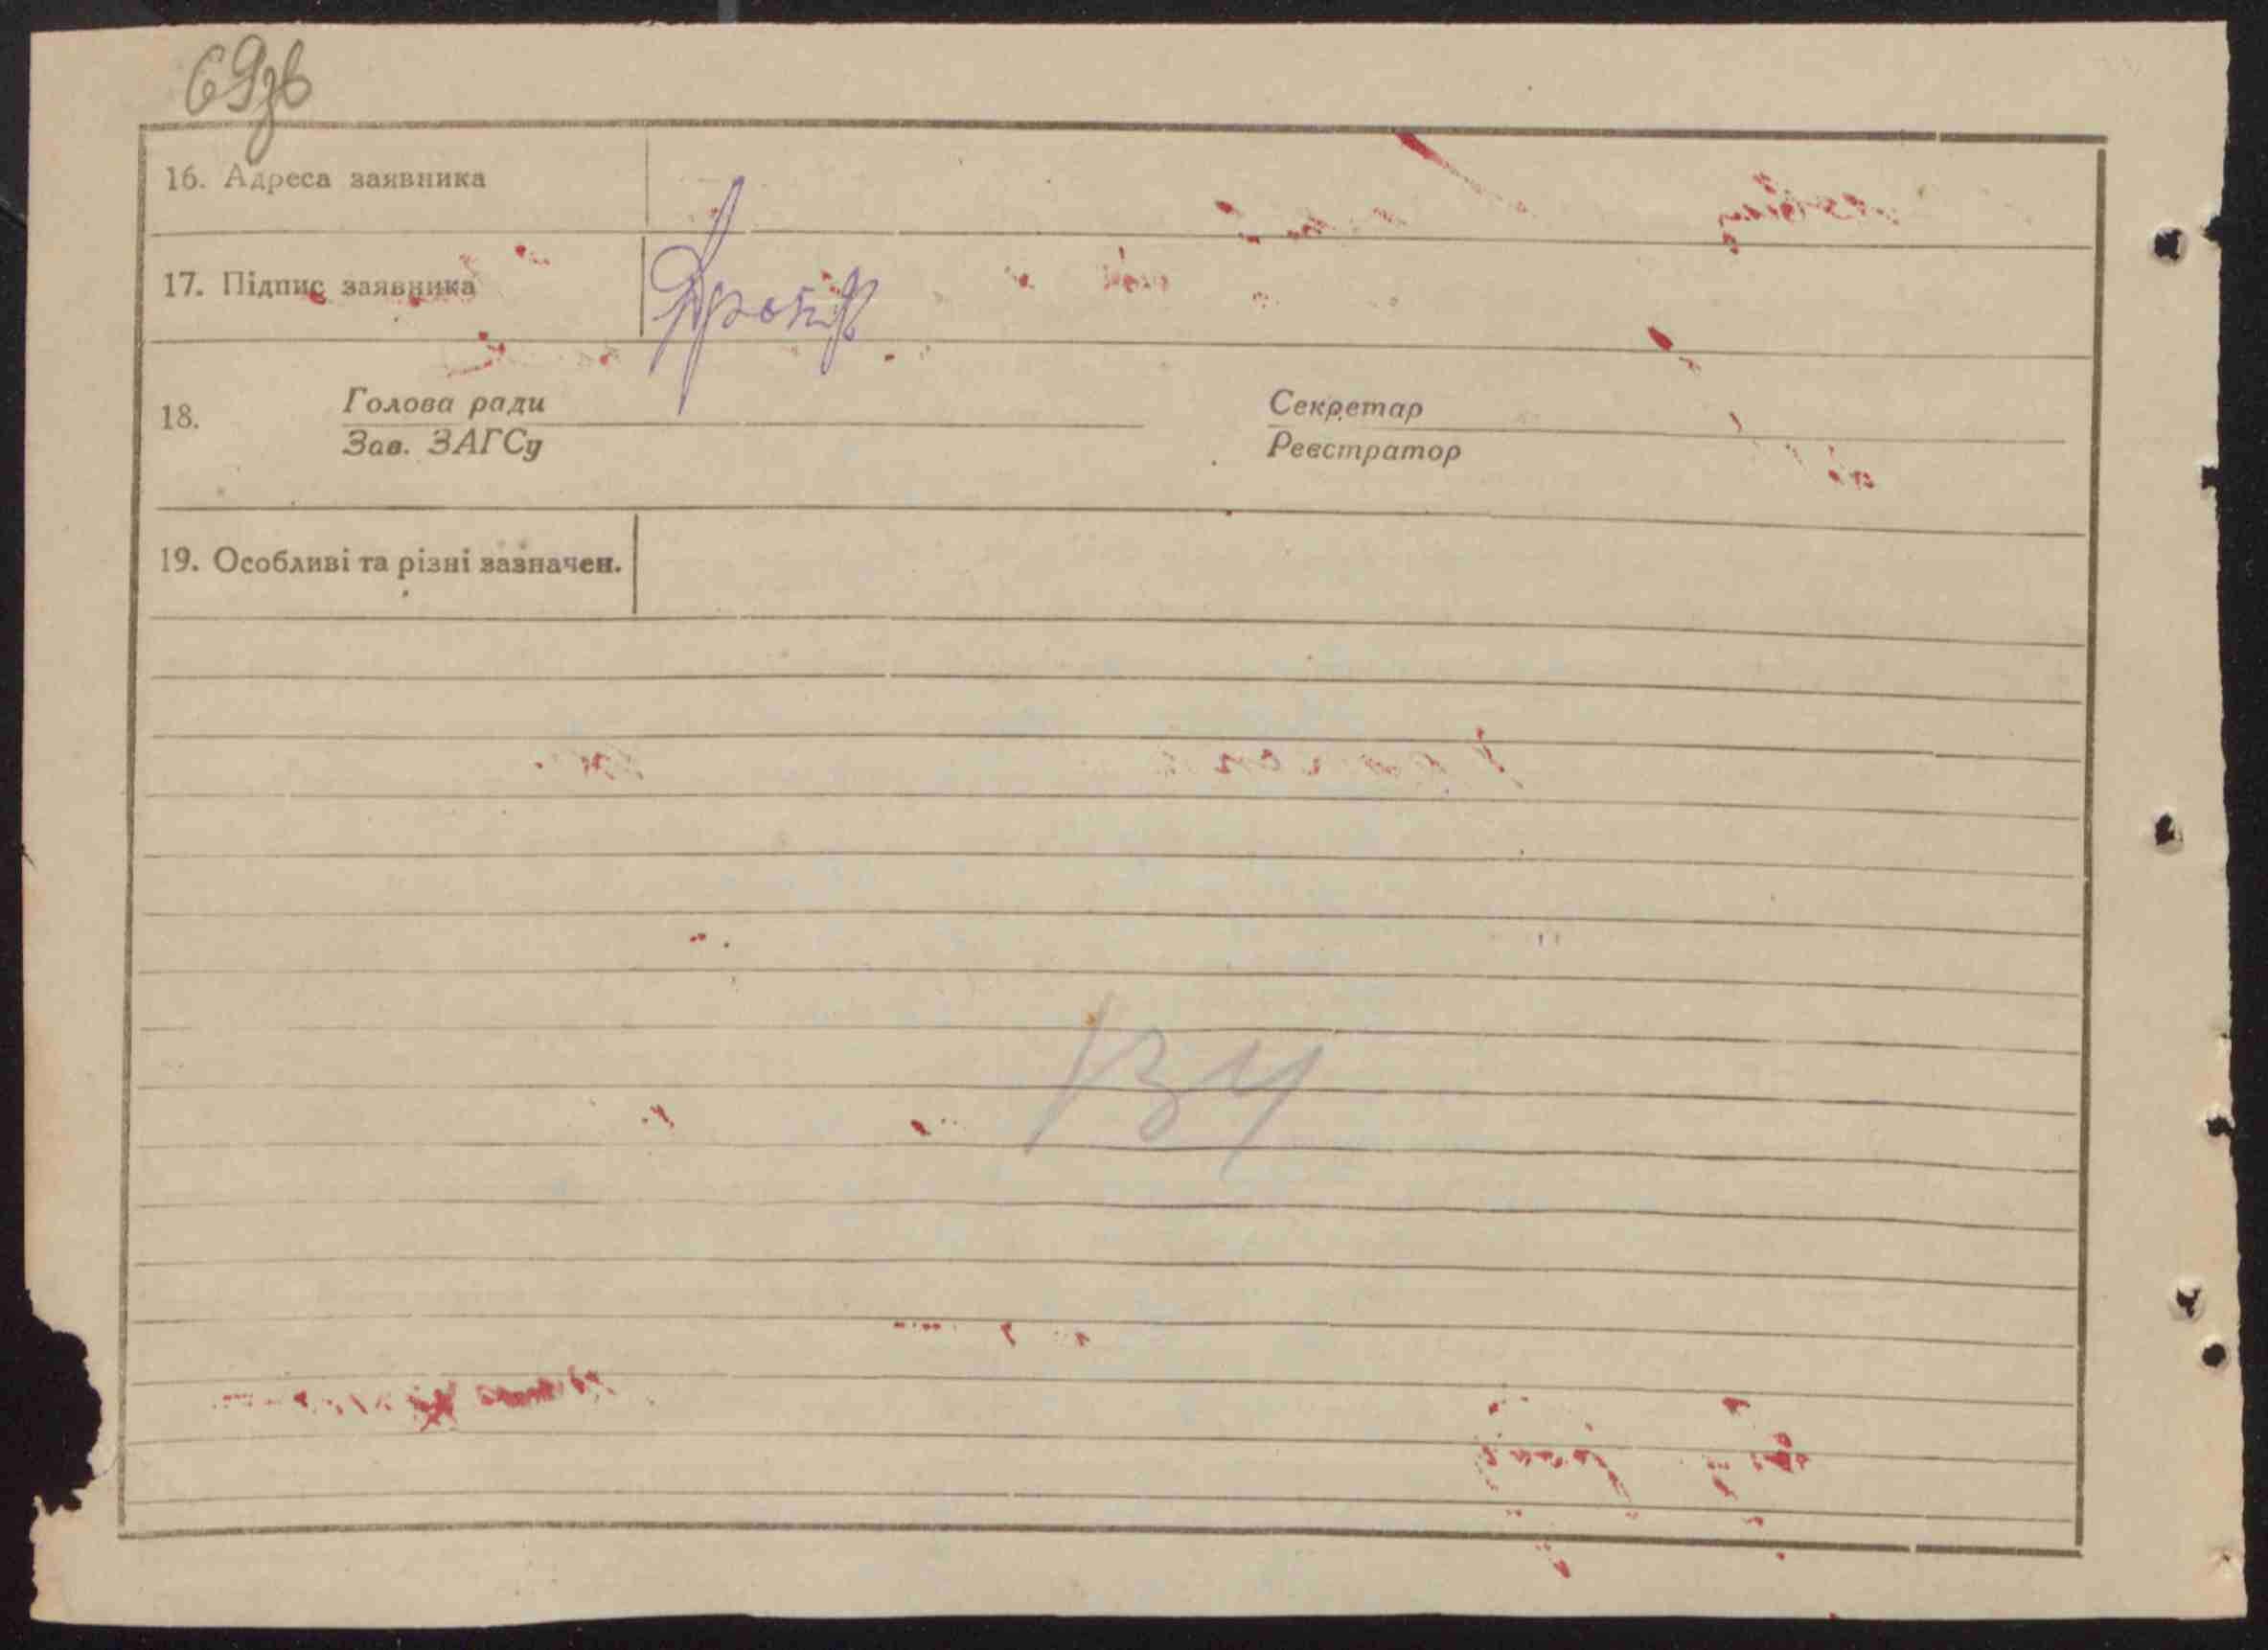 69зв
16. Адреса заявника
17. Підпис заявника
18. Голова ради Секретар
Зав. ЗАГСу Реєстратор
19. Особливі та різні зазначен.